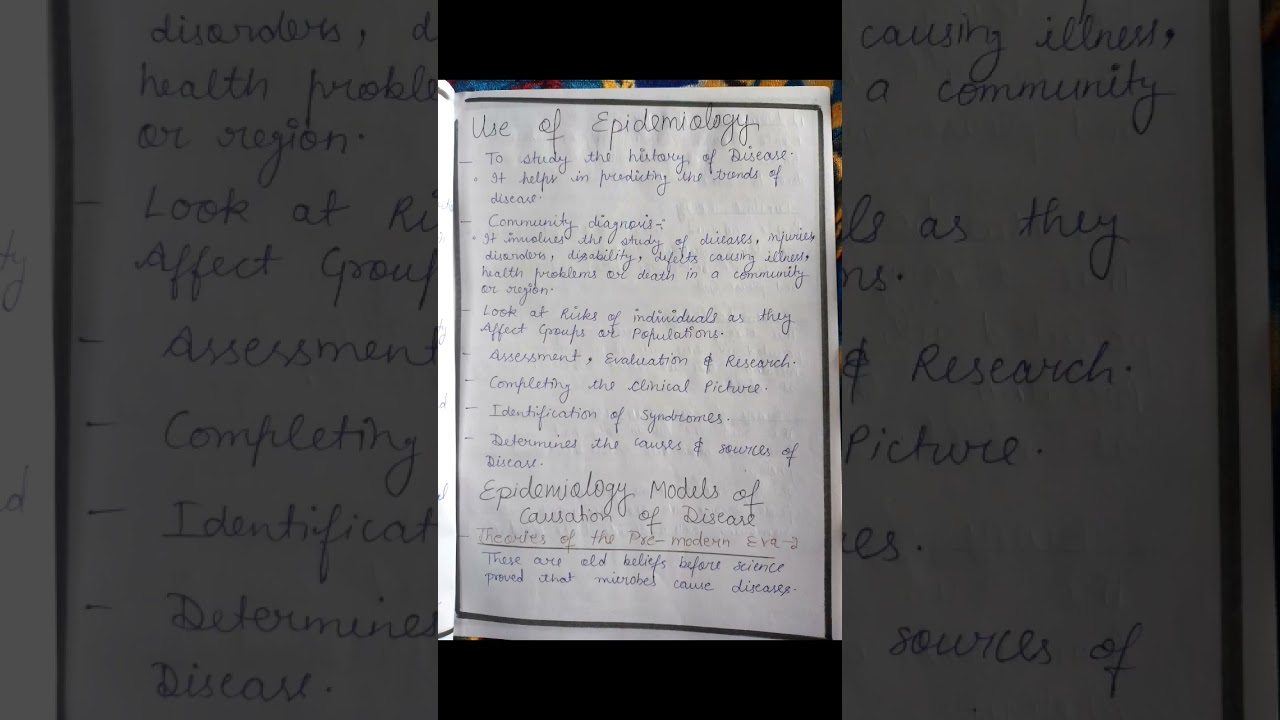 Use of Epidemiology
- To study the history of Disease.
• It helps in predicting the trends of
disease.
- Community diagnosis:-
• It involves the study of diseases, injuries
disorders, disability, defects causing illness,
health problems or death in a community
or region.
- Look at Risks of individuals as they
Affect Groups or Populations.
- Assessment, Evaluation & Research.
- Completing the Clinical Picture.
- Identification of Syndromes.
- Determines the causes & sources of
Disease.
Epidemiology Models of
Causation of Disease
- Theories of the Pre-modern Era→
These are old beliefs before science
proved that microbes cause diseases.